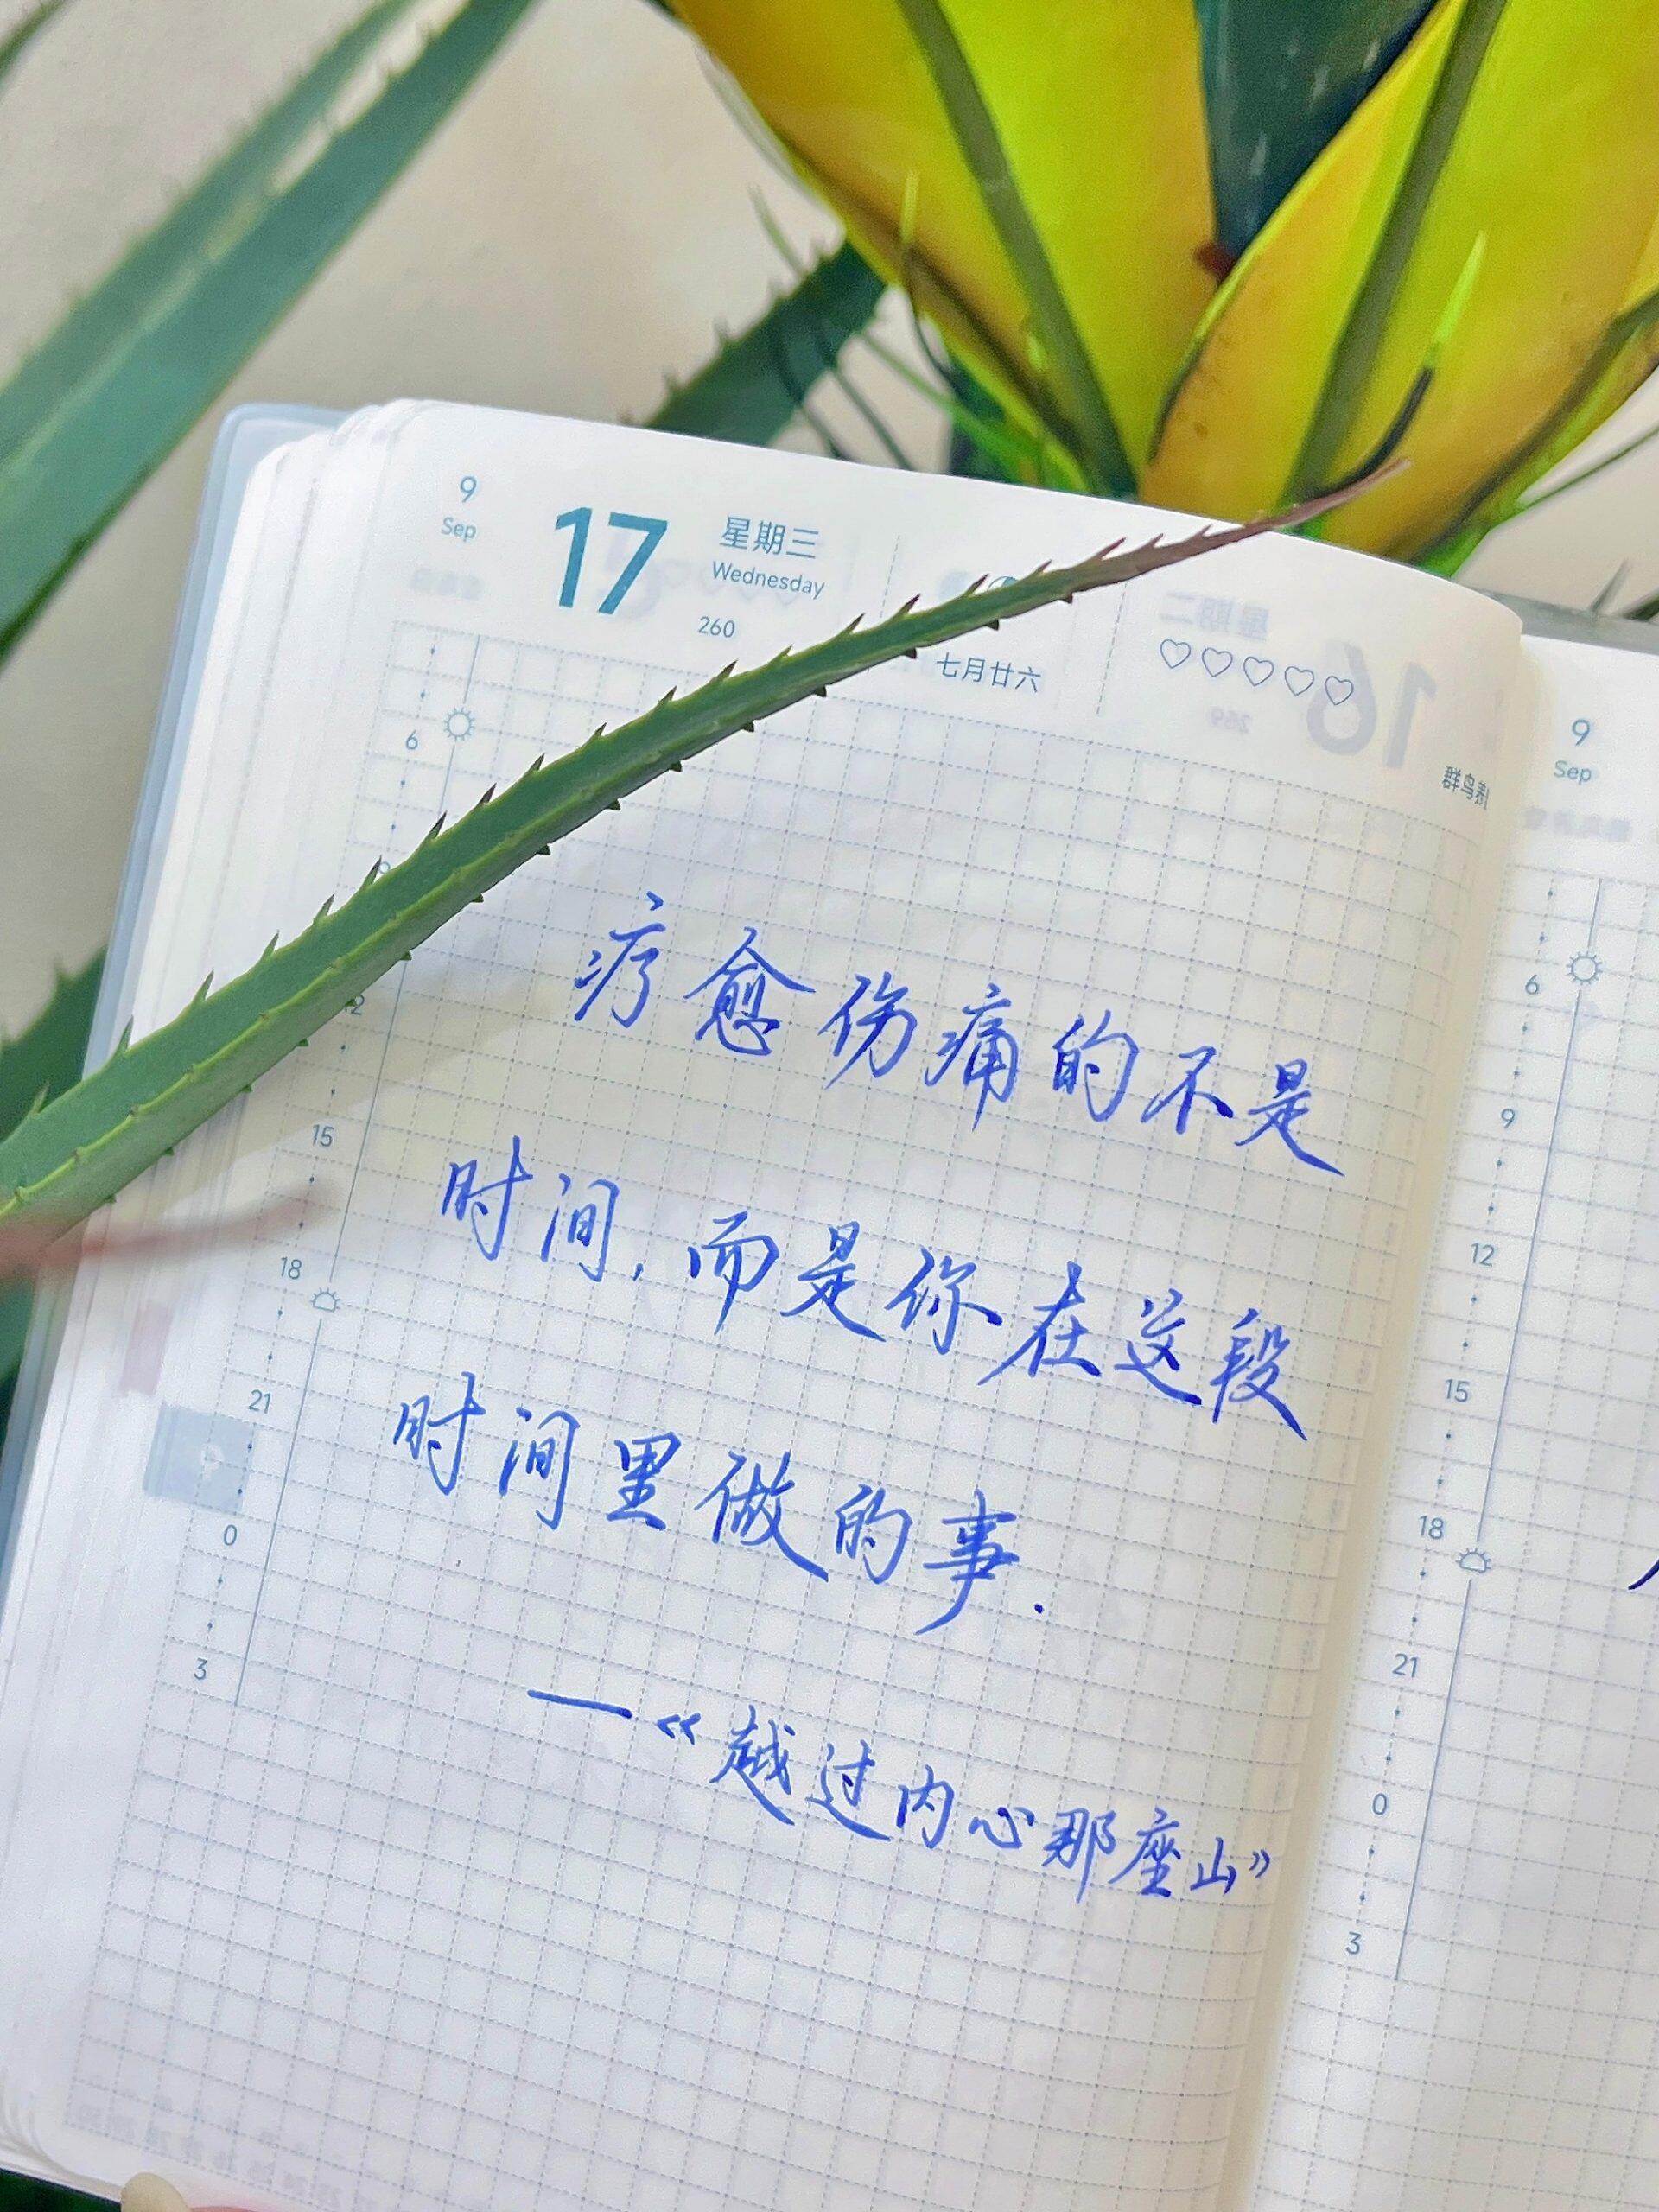 9
Sep
17
星期三
Wednesday
260
七月廿六
群鸟养
6
15
18
21
0
3
疗愈伤痛的不是
时间,而是你在这段
时间里做的事.
—《越过内心那座山》
9
Sep
6
9
12
15
18
21
0
3